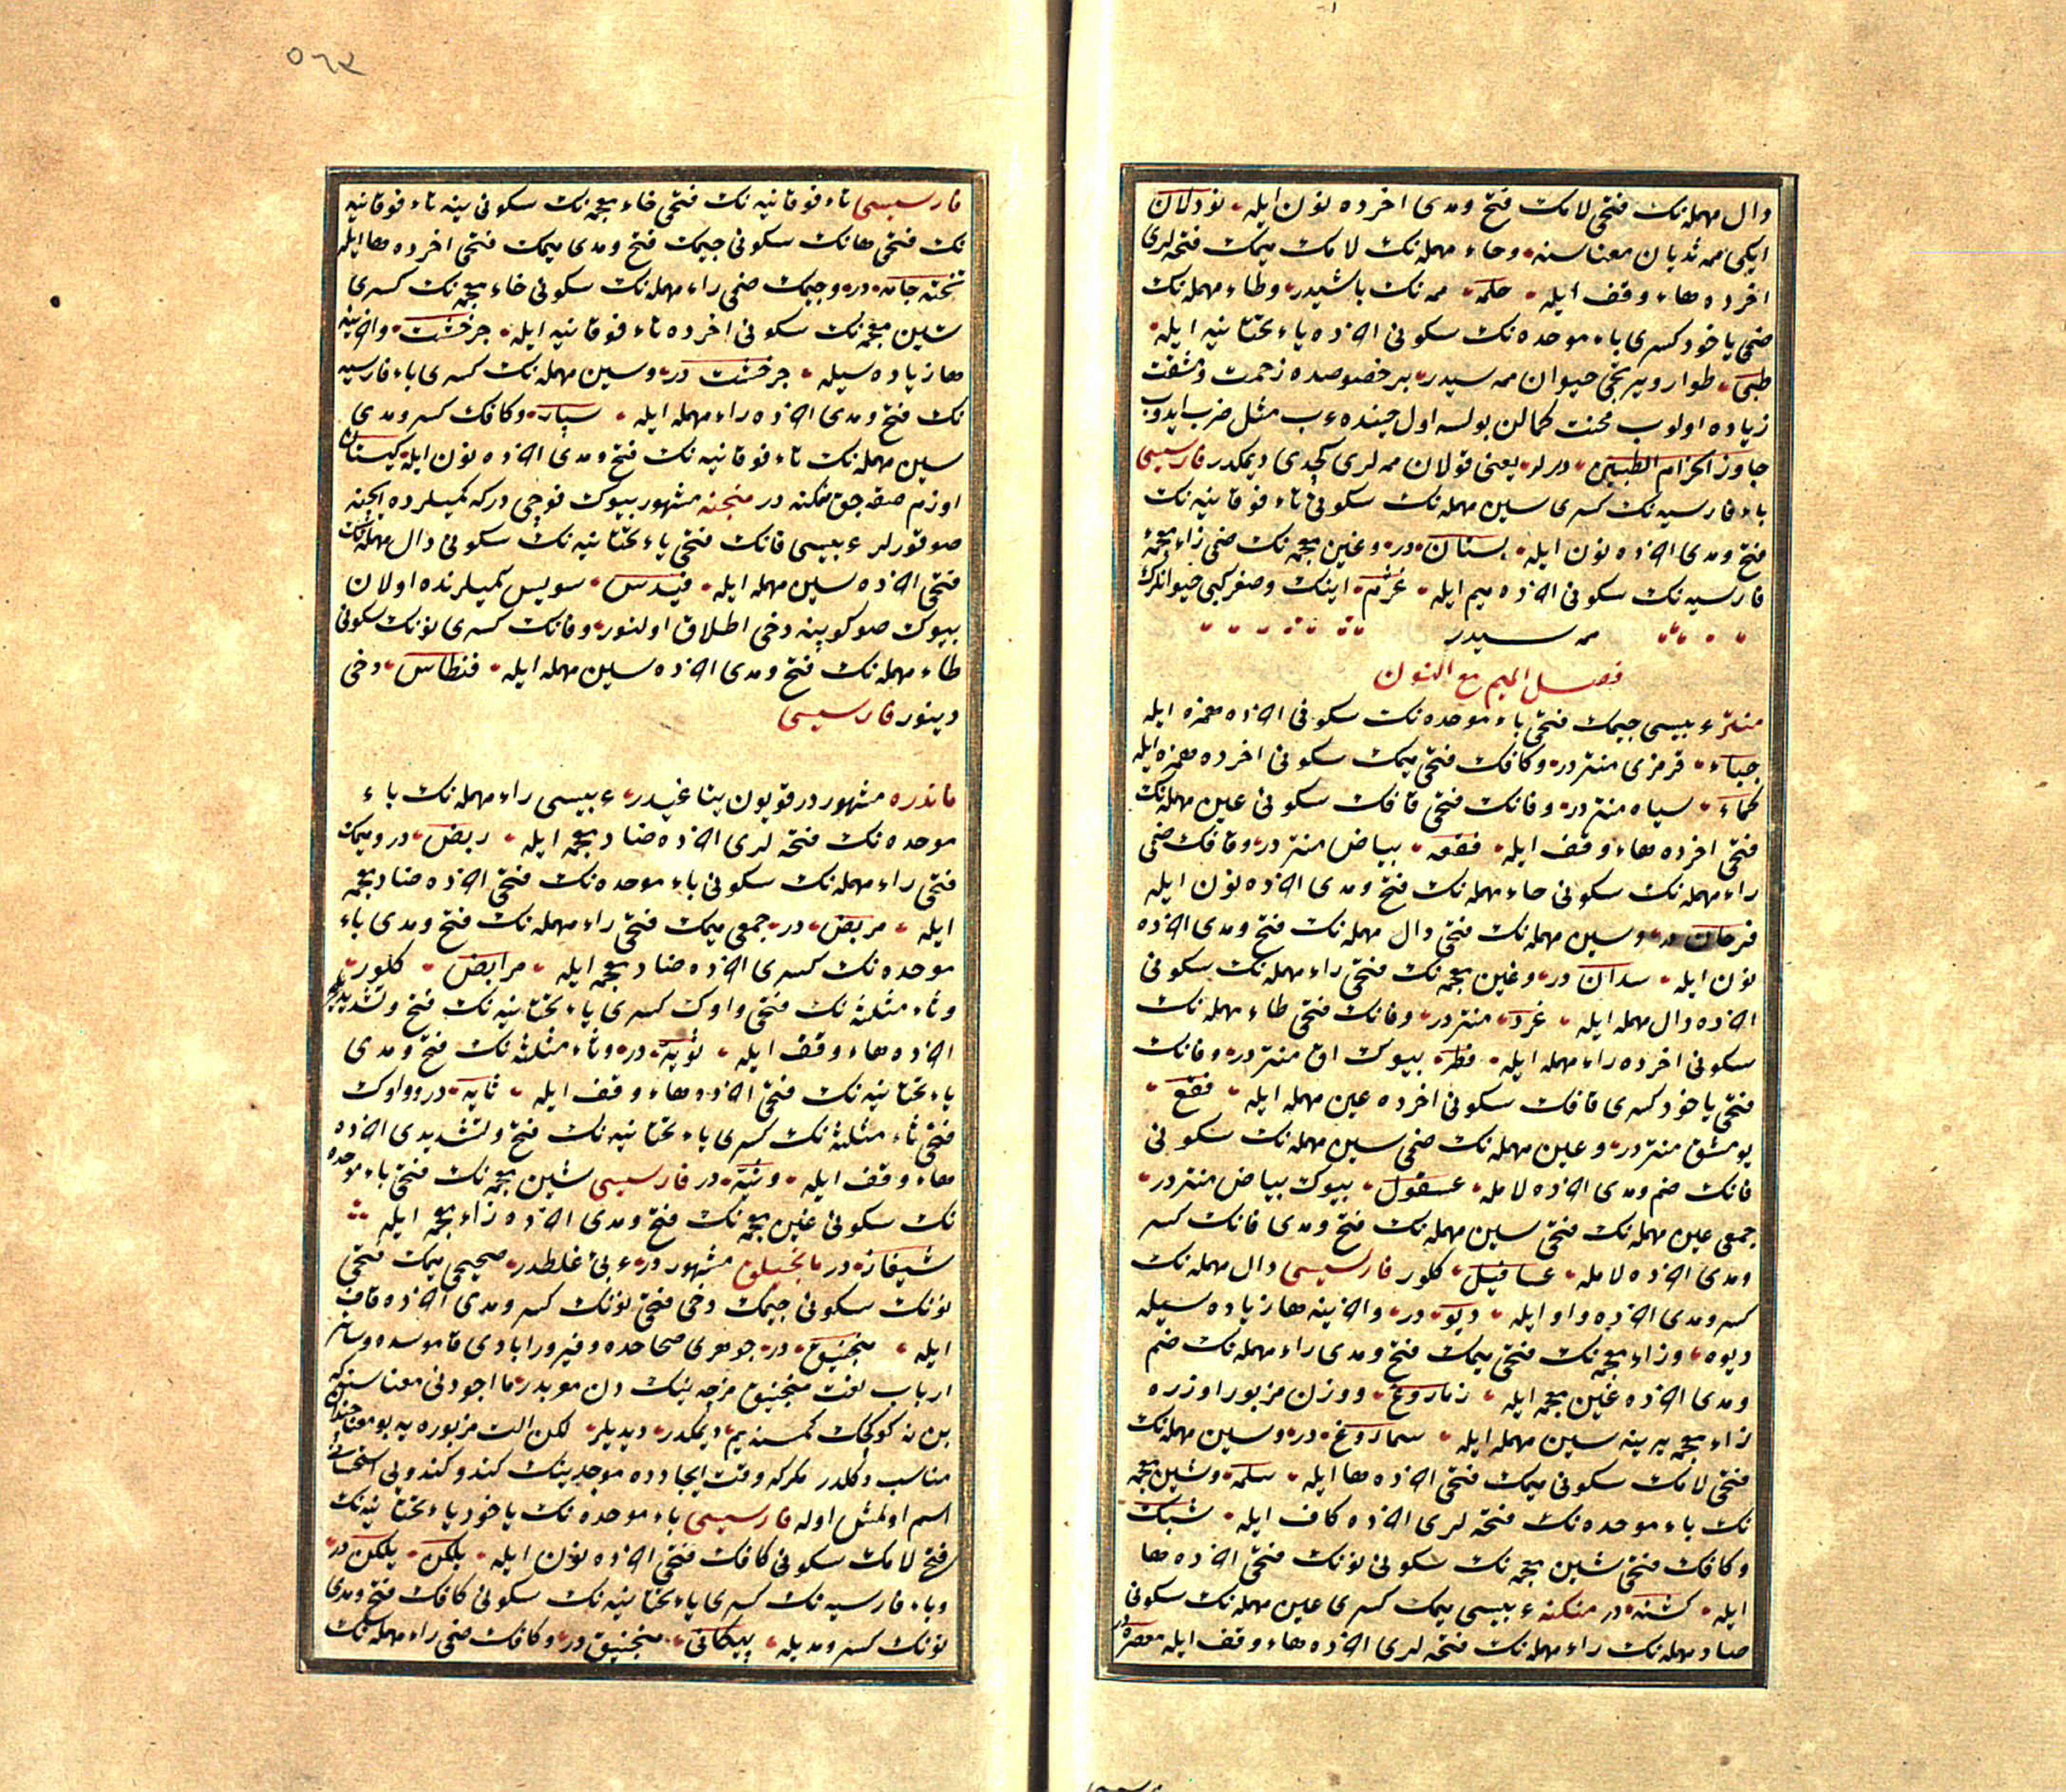 دال مهمله‌نك فتحی لامك فتح و مدی اخرده نون ایله نودلان
ایكی ممه ثدیان معناسنه و حاء مهمله‌نك لامك میمك فتحه‌لری
اخرده هاء وقف ایله حلمه ممه‌نك باشیدر و طاء مهمله‌نك
ضمی یاخود كسری باء موحده‌نك سكونی اخرده یاء تحتانیه ایله
طبی طوار و یرتجی حیوان ممه سیدر بر خصوصده زحمت و مشقت
زیاده اولوب محنت كمالن بولسه اول حینده عرب مثل ضرب ایدوب
جاوز الحزام الطبیین دیرلر یعنی قولان ممه لری كچدی دیمكدر فارسیسی
باء فارسیه‌نك كسری سین مهمله‌نك سكونی تاء فوقانیه‌نك
فتح و مدی اخرده نون ایله بستان در و غین معجمه‌نك ضمی زاء معجمهٔ
فارسیه‌نك سكونی اخرده میم ایله غژم اینك و صغر كبی حیوانلرك
ممه سیدر
فصل المیم مع النون
منتر عربیسی جیمك فتحی باء موحده‌نك سكونی اخرده همزه ایله
جباء قرمزی منتردر و كافك فتحی میمك سكونی اخرده همزه ایله
كماء سیاه منتردر و فانك فتحی قافك سكونی عین مهمله‌نك
فتحی اخرده هاء وقف ایله فقعه بیاض منتردر و قافك ضمی
راء مهمله‌نك سكونی حاء مهمله‌نك فتح و مدی اخرده نون ایله
قرحان در و سین مهمله‌نك فتحی دال مهمله‌نك فتح و مدی اخرده
نون ایله سدان در و غین معجمه‌نك فتحی راء مهمله‌نك سكونی
اخرده دال مهمله ایله غرد منتردر و فانك فتحی طاء مهمله‌نك
سكونی اخرده راء مهمله ایله فطر بیوك اق منتردر و فانك
فتحی یاخود كسری قافك سكونی اخرده عین مهمله ایله فقع
یومشق منتردر و عین مهمله‌نك ضمی سین مهمله‌نك سكونی
قانك ضم و مدی اخرده لامله عسقول بیوك بیاض منتردر
جمعی عین مهمله‌نك فتحی سین مهمله‌نك فتح و مدی قانك كسر
و مدی اخرده لامله عساقیل كلور فارسیسی دال مهمله‌نك
كسر و مدی اخرده واو ایله دیو در و اخرینه ها زیاده سیله
دیوه و زاء معجمه‌نك فتحی میمك فتح و مدی راء مهمله‌نك ضم
و مدی اخرده غین معجمه ایله زماروغ و وزن مزبور اوزره
زاء معجمه یرینه سین مهمله ایله سماروغ در و سین مهمله‌نك
فتحی لامك سكونی میمك فتحی اخرده ها ایله سلمه و شین معجمه
نك باء موحده‌نك فتحه لری اخرده كاف ایله شبك
و كافك فتحی شین معجمه‌نك سكونی نونك فتحی اخرده ها
ایله كشنه در منكنه عربیسی میمك كسری عین مهمله‌نك سكونی
صاد مهمله‌نك راء مهمله‌نك فتحه لری اخرده هاء وقف ایله معصره در
فارسیسی تاء فوقانیه‌نك فتحی خاء معجمه‌نك سكونی ینه تاء فوقانیه
نك فتحی هانك سكونی جیمك فتح و مدی میمك فتحی اخرده ها ایله
تخته جامه در و جیمك ضمی راء مهمله‌نك سكونی خاء معجمه‌نك كسری
شین معجمه‌نك سكونی اخرده تاء فوقانیه ایله جرخشت و اخرینه
ها زیاده سیله جرخشت در و سین مهمله‌نك كسری باء فارسیه
نك فتح و مدی اخرده راء مهمله ایله سپار و كافك كسر و مدی
سین مهمله‌نك تاء فوقانیه‌نك فتح و مدی اخرده نون ایله كیستان
اوزم صقه‌جق منكنه در منجنه مشهور بیوك فوچی دركه كمیلرده ایچنه
صو قورلر عربیسی فانك فتحی یاء تحتانیه‌نك سكونی دال مهمله‌نك
فتحی اخرده سین مهمله ایله فیدس سویس كمیلرنده اولان
بیوك صو كوپنه دخی اطلاق اولنور و فانك كسری نونك سكونی
طاء مهمله‌نك فتح و مدی اخرده سین مهمله ایله فنطاس دخی
دینور فارسیسی
ماندره مشهور در قویون یتاغیدر عربیسی راء مهمله‌نك باء
موحده‌نك فتحه لری اخرده ضاد معجمه ایله ربض در و میمك
فتحی راء مهمله‌نك سكونی باء موحده‌نك فتحی اخرده ضاد معجمه
ایله مربض در جمعی میمك فتحی راء مهمله‌نك فتح و مدی باء
موحده‌نك كسری اخرده ضاد معجمه ایله مرابض كلور
و ثاء مثلثه‌نك فتحی واوك كسری یاء تحتانیه‌نك فتح و تشدیدی
اخرده هاء وقف ایله ثویه در و ثاء مثلثه‌نك فتح و مدی
یاء تحتانیه‌نك فتحی اخرده هاء وقف ایله ثایه در و واوك
فتحی ثاء مثلثه‌نك كسری یاء تحتانیه‌نك فتح و تشدیدی اخرده
هاء وقف ایله وثیه در فارسیسی شین معجمه‌نك فتحی باء موحده
نك سكونی غین معجمه‌نك فتح و مدی اخرده زاء معجمه ایله
شبغاز در مانجنیلق مشهور در عربی غلطدر صحیحی میمك فتحی
نونك سكونی جیمك دخی فتحی نونك كسر و مدی اخرده قاف
ایله منجنیق در جوهری صحاحده و فیروزابادی قاموسده و سائر
ارباب لغت منجنیق من چه نیك دن معربدر ما اجودنی معناسنه كه
بن نه كوكچك كمسنه یم دیمكدر دیدیلر لكن الت مزبوره یه بو معنا چندان
مناسب دكلدر مكر كه وقت ایجادده موجدینك كندو كندویی استحسانی
اسم اولمش اوله فارسیسی باء موحده‌نك یاخود یاء تحتانیه‌نك
فتح لامك سكونی كافك فتحی اخرده نون ایله بلكن یلكن در
و باء فارسیه‌نك كسری یاء تحتانیه‌نك سكونی كافك فتح و مدی
نونك كسر و مدیله پیكانی منجنیق در و كافك ضمی راء مهمله‌نك